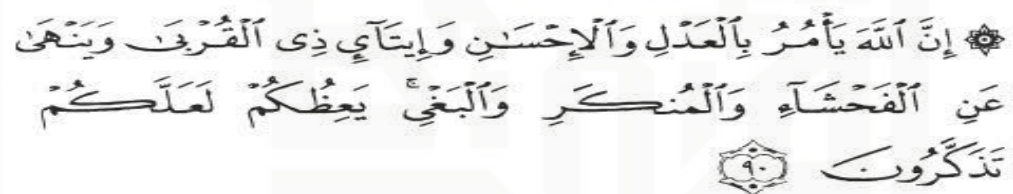 ۞ إِنَّ ٱللَّهَ يَأْمُرُ بِٱلْعَدْلِ وَٱلْإِحْسَـٰنِ وَإِيتَآئِ ذِى ٱلْقُرْبَىٰ وَيَنْهَىٰ
عَنِ ٱلْفَحْشَآءِ وَٱلْمُنكَرِ وَٱلْبَغْىِ ۚ يَعِظُكُمْ لَعَلَّكُمْ
تَذَكَّرُونَ ٩٠